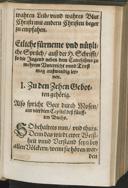 wahren Leib/ und wahres Blut
Christi mit andern Christen begert
zu empfahen.
Etliche fürneme und nützli-
che Sprüch/ auß der H. Schrifft/
so die Jugend neben dem Catechismo zu
mehrerm Unterricht und Trost
mag außwendig ler-
nen.
1. Zu den Zehen Gebot-
ten gehörig.
Also spricht Gott durch Mosen/
am vierdten Capitel deß fünff-
ten Buchs.
SO behaltets nun/ und thuts.
Denn das wird ewer Weiß-
heit und Verstand seyn bey
allen Völckern/ wenn sie hören wer-